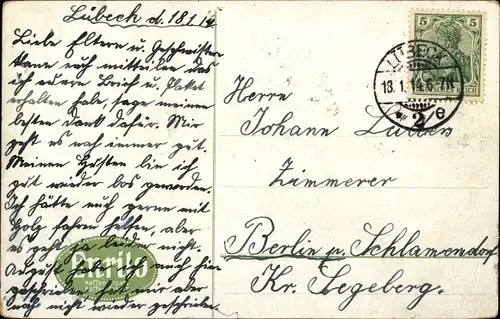 Lübeck d. 18.1.14
Liebe Eltern u. Geschwister
Kann euch mitteilen das
ich euren Brief u. Paket
erhalten habe, sage meinen
besten Dank dafür. Mir
geht es noch immer gut.
Meinen Husten bin ich
gut wieder los geworden.
Ich hätte euch gerne mit
Holz fahren helfen, aber
es geht ja leider nicht.
August habe ich auch hin
geschrieben hat mir aber
noch nicht wieder geschrieben.
Enrilo
5 5
18.1.14.6-7N
2 e
Herrn
Johann
Zimmerer
Berlin p. Schlamersdorf
Kr. Segeberg.